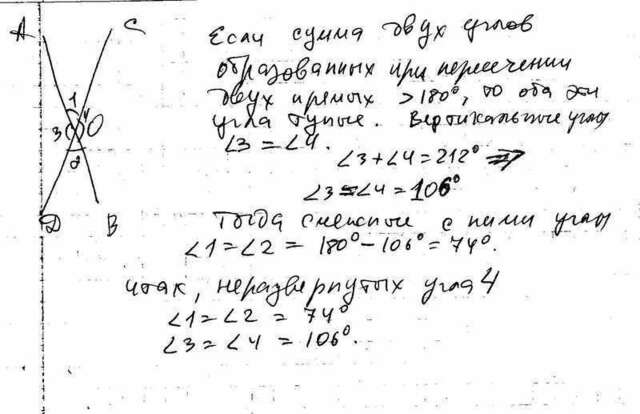 A
C
1
3
4
O
2
D
B
Если сумма двух углов
образованных при пересечении
двух прямых > 180°, то оба эти
угла тупые. Вертикальные углы
∠3 = ∠4.
∠3 + ∠4 = 212° ⇒
∠3 = ∠4 = 106°
Тогда смежные с ними углы
∠1 = ∠2 = 180° − 106° = 74°.
итак, неразвернутых угла 4
∠1 = ∠2 = 74°
∠3 = ∠4 = 106°.